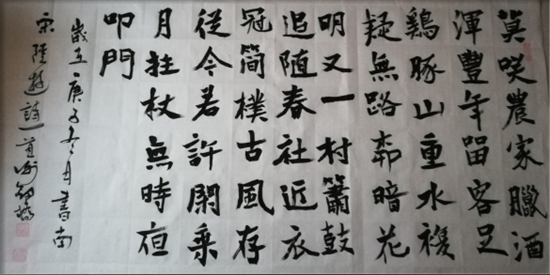 莫咲農家臘酒
渾豐年留客足
鷄豚山重水複
疑無路柳暗花
明又一村簫鼓
追随春社近衣
冠簡樸古風存
從今若許閑乘
月拄杖無時夜
叩門
歲在庚子冬月書南
宋陸游詩一首